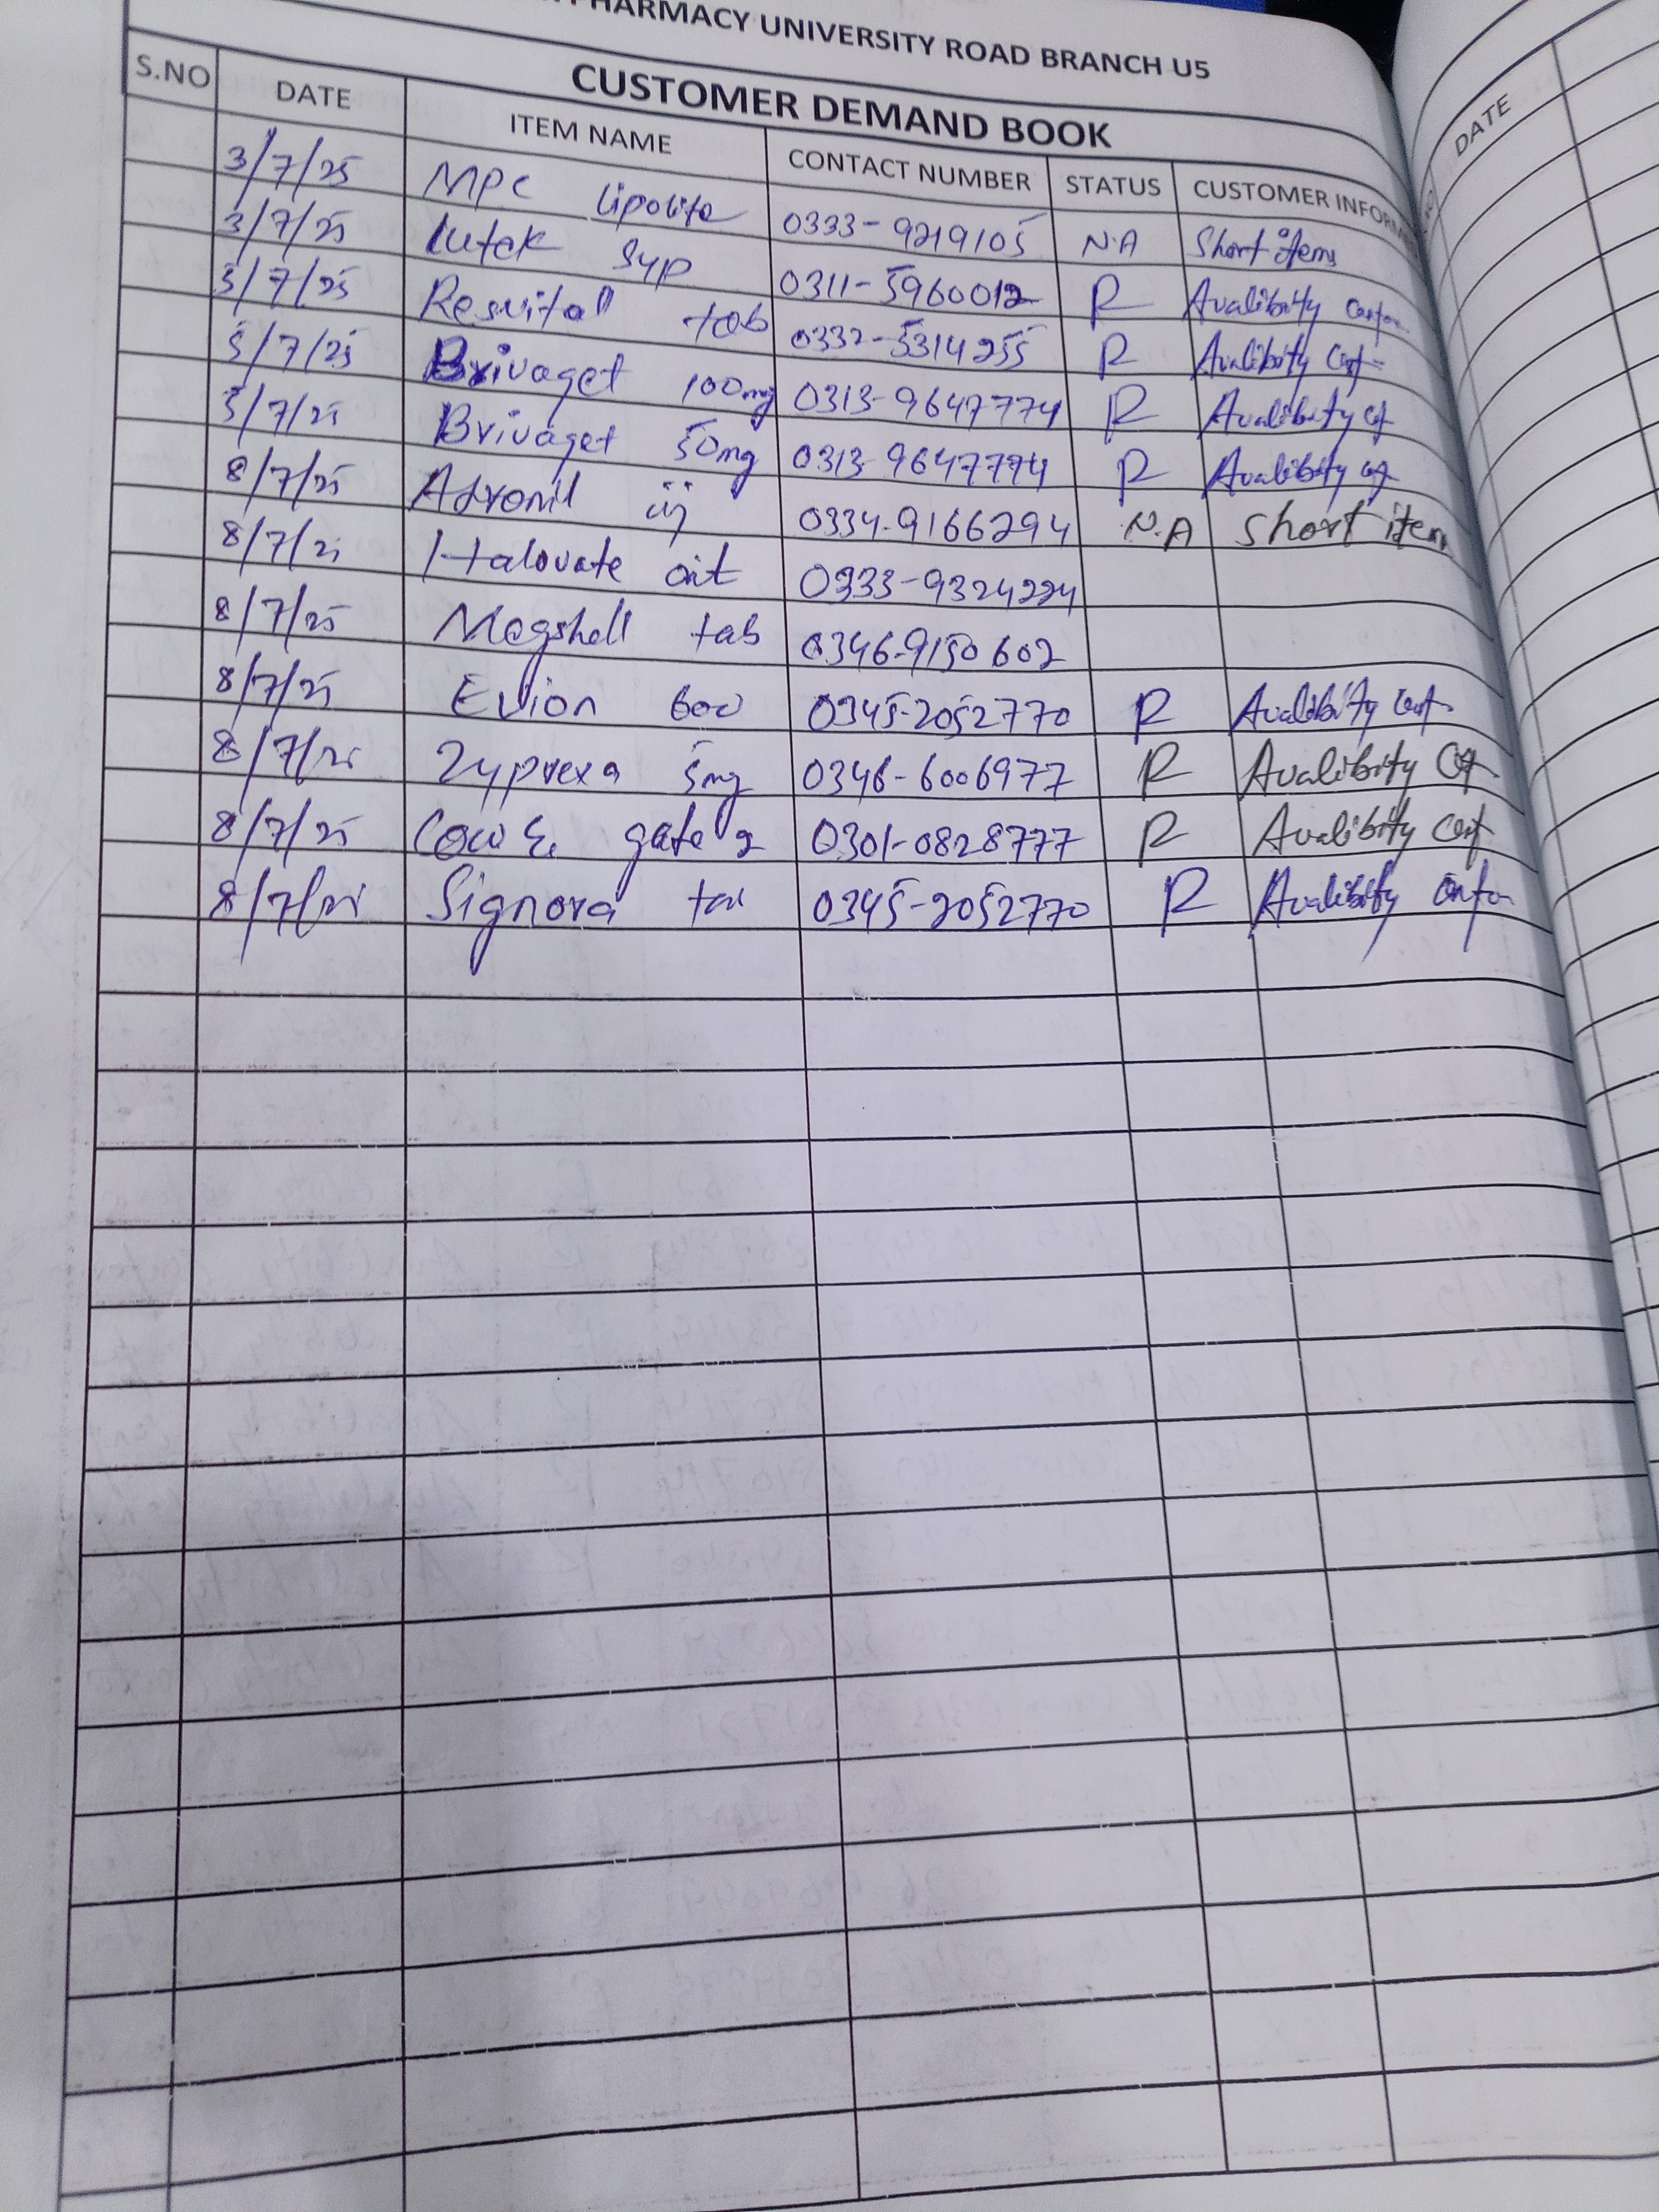 PHARMACY UNIVERSITY ROAD BRANCH U5
CUSTOMER DEMAND BOOK
S.NO DATE ITEM NAME CONTACT NUMBER STATUS CUSTOMER INFORM
3/7/25 MPC Lipolife 0333-9219105 N.A Short items
3/7/25 Lutek Syp 0311-5960012 R Avalibity
3/7/25 Resvitall tab 0332-5314255 R Avalibity
5/7/25 Brivaget 100mg 0313-9647774 R Avalibity
5/7/25 Brivaget 50mg 0313-9647774 R Avalibity
8/7/25 inj 0334-9166294 N.A Short item
8/7/25 Halovate oit 0333-9324224
8/7/25 Magshell tab 0346-9150602
8/7/25 Evion 600 0345-2052770 R Avalibity
8/7/25 Zyprexa 5mg 0346-6006977 R Avalibity
8/7/25 Cow & gate 2 0301-0828777 R Avalibity
8/7/25 Signora 0345-2052770 R Avalibity
DATE